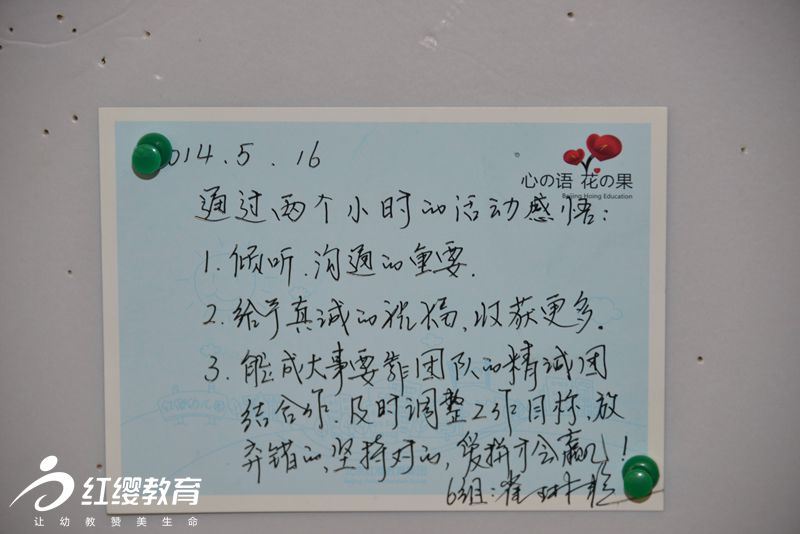 2014.5.16
心の语 花の果
Beijing Hoing Education
通过两个小时的活动感悟：
1. 倾听、沟通的重要.
2. 给予真诚的祝福、收获更多.
3. 能成大事要靠团队的精诚团
结合作、及时调整工作目标、放
弃错的、坚持对的，爱拼才会赢！
6组：崔
红缨教育
让幼教赞美生命